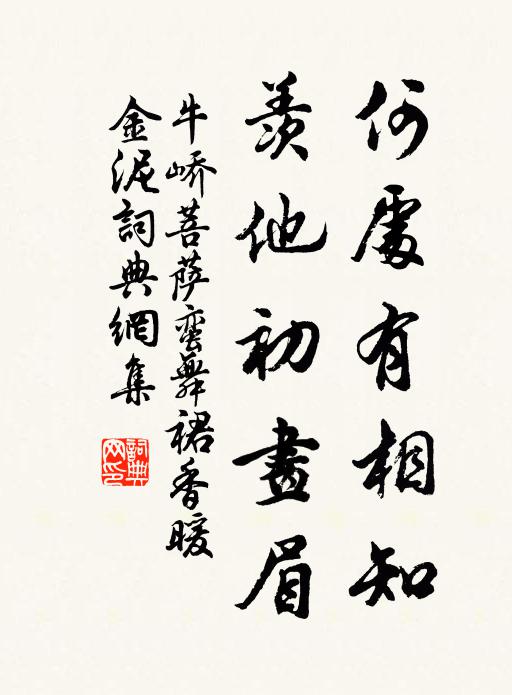 何處有相知
羨他初畫眉
牛嶠菩薩蠻舞裙香暖
金泥詞典網集
詞典網印